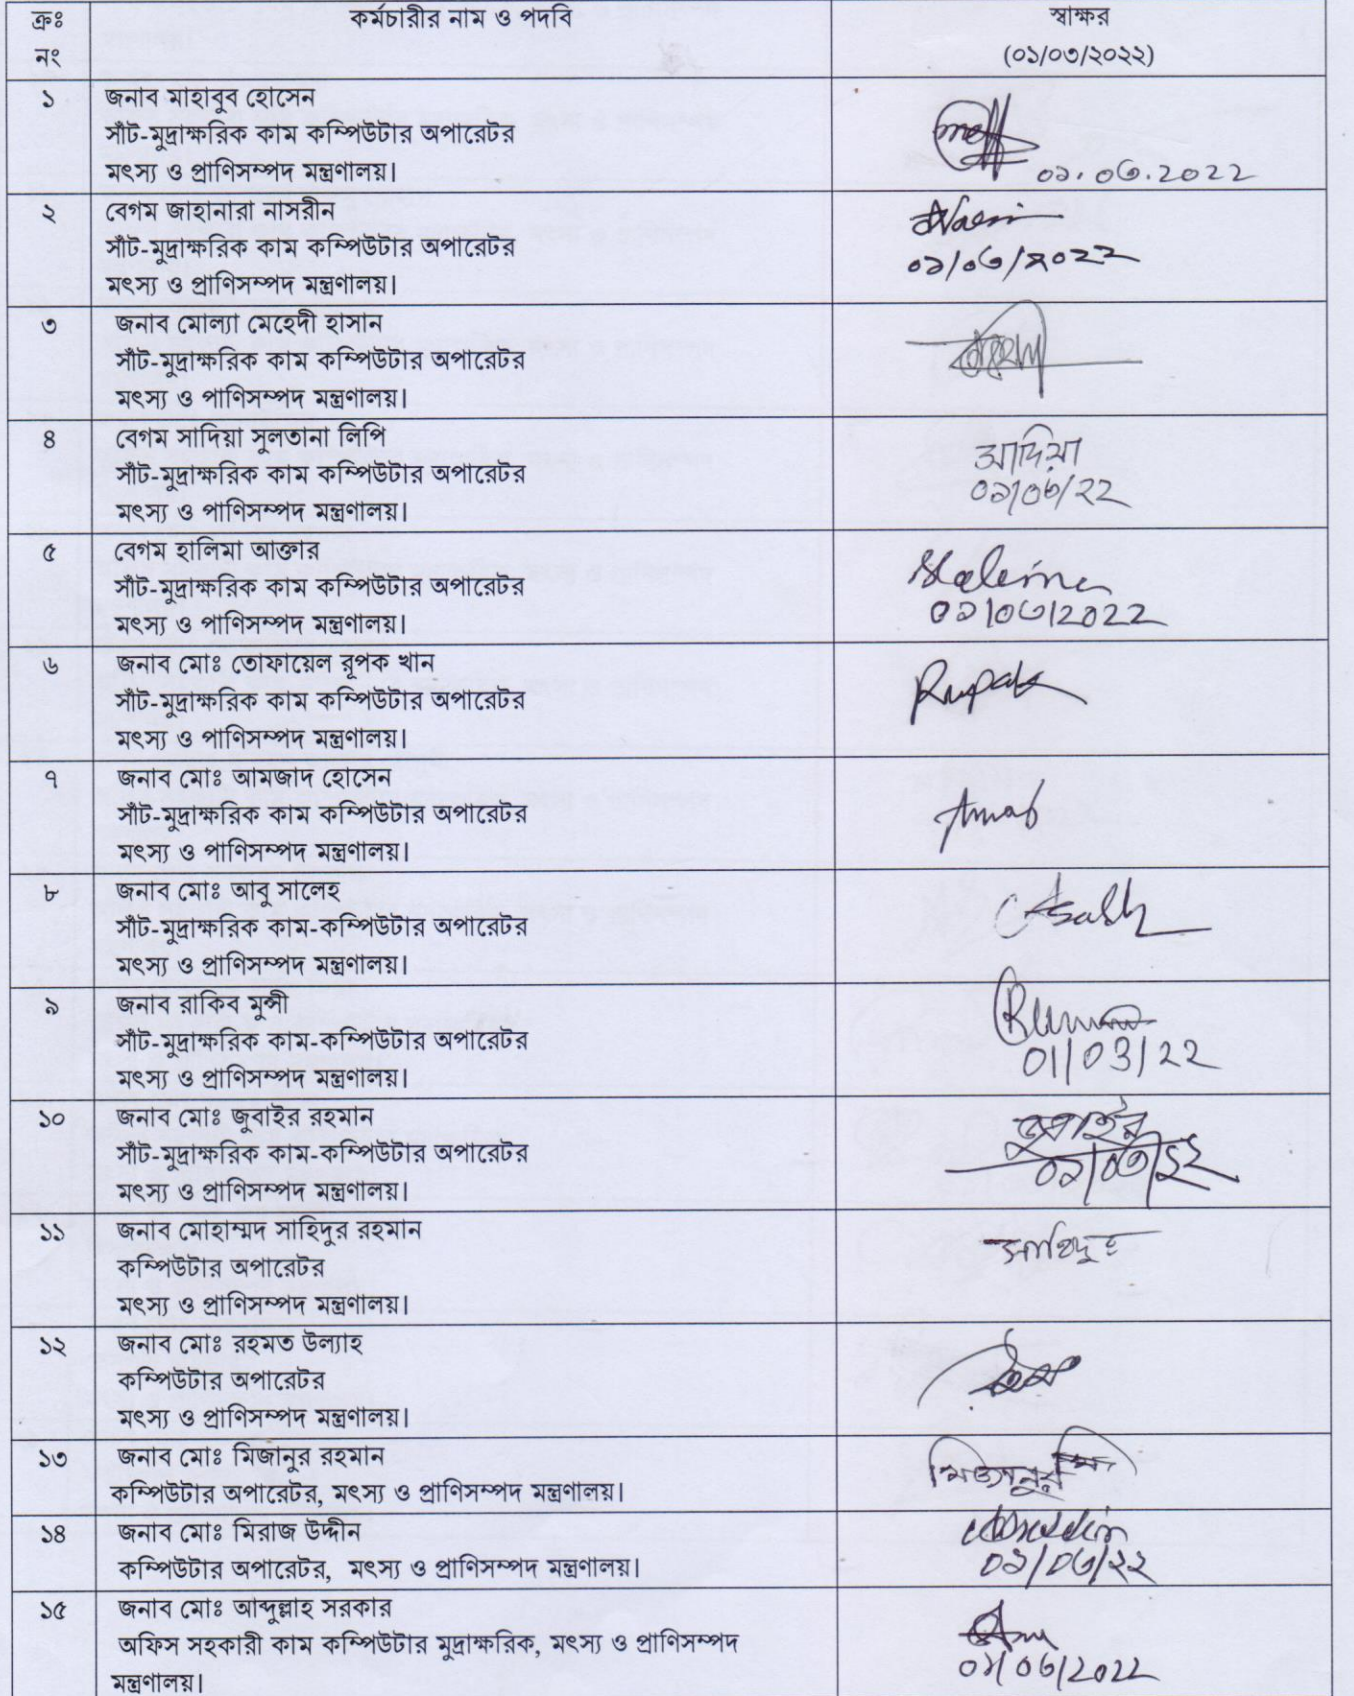 ক্রঃ নং কর্মচারীর নাম ও পদবি স্বাক্ষর
(০১/০৩/২০২২)
১ জনাব মাহাবুব হোসেন
সাঁট-মুদ্রাক্ষরিক কাম কম্পিউটার অপারেটর
মৎস্য ও প্রাণিসম্পদ মন্ত্রণালয়।
০১.০৩.2022
২ বেগম জাহানারা নাসরীন
সাঁট-মুদ্রাক্ষরিক কাম কম্পিউটার অপারেটর
মৎস্য ও প্রাণিসম্পদ মন্ত্রণালয়।
০১/০৩/২০২২
৩ জনাব মোল্যা মেহেদী হাসান
সাঁট-মুদ্রাক্ষরিক কাম কম্পিউটার অপারেটর
মৎস্য ও পাণিসম্পদ মন্ত্রণালয়।
৪ বেগম সাদিয়া সুলতানা লিপি
সাঁট-মুদ্রাক্ষরিক কাম কম্পিউটার অপারেটর
মৎস্য ও পাণিসম্পদ মন্ত্রণালয়।
সাদিয়া
০১/০৩/২২
৫ বেগম হালিমা আক্তার
সাঁট-মুদ্রাক্ষরিক কাম কম্পিউটার অপারেটর
মৎস্য ও পাণিসম্পদ মন্ত্রণালয়।
Halima
০১/০৩/2022
৬ জনাব মোঃ তোফায়েল রূপক খান
সাঁট-মুদ্রাক্ষরিক কাম কম্পিউটার অপারেটর
মৎস্য ও পাণিসম্পদ মন্ত্রণালয়।
Rupak
৭ জনাব মোঃ আমজাদ হোসেন
সাঁট-মুদ্রাক্ষরিক কাম কম্পিউটার অপারেটর
মৎস্য ও পাণিসম্পদ মন্ত্রণালয়।
৮ জনাব মোঃ আবু সালেহ
সাঁট-মুদ্রাক্ষরিক কাম-কম্পিউটার অপারেটর
মৎস্য ও প্রাণিসম্পদ মন্ত্রণালয়।
৯ জনাব রাকিব মুন্সী
সাঁট-মুদ্রাক্ষরিক কাম-কম্পিউটার অপারেটর
মৎস্য ও প্রাণিসম্পদ মন্ত্রণালয়।
01/03/22
১০ জনাব মোঃ জুবাইর রহমান
সাঁট-মুদ্রাক্ষরিক কাম-কম্পিউটার অপারেটর
মৎস্য ও প্রাণিসম্পদ মন্ত্রণালয়।
জুবাইর
০১/০৩/২২
১১ জনাব মোহাম্মদ সাহিদুর রহমান
কম্পিউটার অপারেটর
মৎস্য ও প্রাণিসম্পদ মন্ত্রণালয়।
সাহিদুর
১২ জনাব মোঃ রহমত উল্যাহ
কম্পিউটার অপারেটর
মৎস্য ও প্রাণিসম্পদ মন্ত্রণালয়।
১৩ জনাব মোঃ মিজানুর রহমান
কম্পিউটার অপারেটর, মৎস্য ও প্রাণিসম্পদ মন্ত্রণালয়।
মিজানুর
১৪ জনাব মোঃ মিরাজ উদ্দীন
কম্পিউটার অপারেটর, মৎস্য ও প্রাণিসম্পদ মন্ত্রণালয়।
০১/০৩/২২
১৫ জনাব মোঃ আব্দুল্লাহ সরকার
অফিস সহকারী কাম কম্পিউটার মুদ্রাক্ষরিক, মৎস্য ও প্রাণিসম্পদ
মন্ত্রণালয়।
০১/০৩/2022